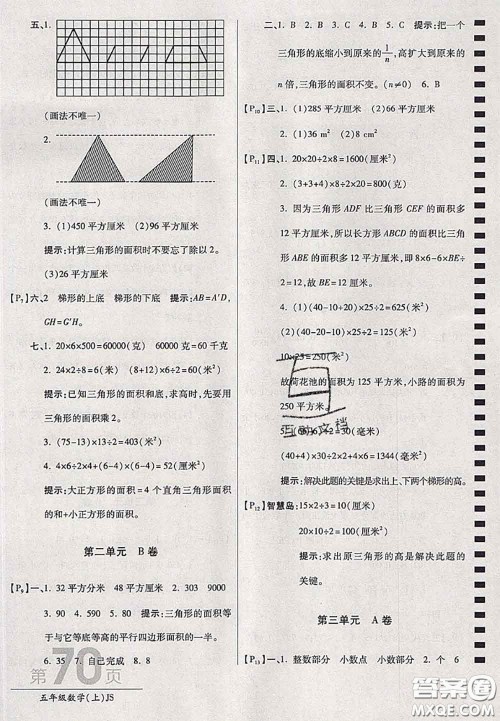 五、1.
(画法不唯一)
2.
(画法不唯一)
3. (1)450平方厘米 (2)96平方厘米
提示:计算三角形的面积时不要忘了除以2。
(3)26平方厘米
六、2 梯形的上底 梯形的下底 提示:AB=A'D,
GH=G'H。
七、1. 20×6×500=60000(克) 60000克=60千克
2. 24×2÷8=6(米) (8+6)×24÷2=168(米²)
提示:已知三角形的面积和底,求高时,先要用
三角形的面积乘2。
3. (75-13)×13÷2=403(米²)
4. 6×7÷2×4+(7-6)×(7-6)=85(厘米²)
提示:大正方形的面积=4个直角三角形面积
的和+小正方形的面积。
第二单元 B卷
[P₉]一、1. 32平方分米 48平方厘米 2. 303 9000
3. 90 4. 590 5. 90 提示:三角形的面积等
于与它等底等高的平行四边形面积的一半。
6. 35 7. 自己完成 8. 8
第70页
五年级数学(上)JS
二、1. B 2. B 3. C 4. B 5. C 提示:把一个
三角形的底缩小到原来的1/n,高扩大到原来的
n倍,三角形的面积不变。(n≠0) 6. B
[P₁₀]三、1. (1)285平方厘米 (2)63平方厘米
2. (1)36 m² (2)8 cm²
[P₁₁]四、1. 20×20÷2×8=1600(厘米²)
2. (3+3+4)×8÷2=40(厘米²)
3. 因为三角形ADF比三角形CEF的面积多
12平方厘米,所以长方形ABCD的面积比三角
形ABE的面积多12平方厘米,即8×6-6×BE÷
2=12,则BE=12(厘米)。
4. (1)(40-10)×25÷2=375(米²)
(2)(40-10-10)×25÷2=250(米²)
10×25=250(米²)
故荷花池的面积为125平方米,小路的面积为
250平方米。
(40+4)×30÷2+(40+4)×6+2×6=1344(厘米²)
提示:解决此题的关键是求出上、下两个梯形的高。
[P₁₂]智慧岛:15×2÷3=10(厘米)
20×10÷2=100(厘米²)
提示:求出原三角形的高是解决此题
的关键。
第三单元 A卷
[P₁₃]一、1. 整数部分 小数点 小数部分 2. 个 6
答案圈
MXQE.COM